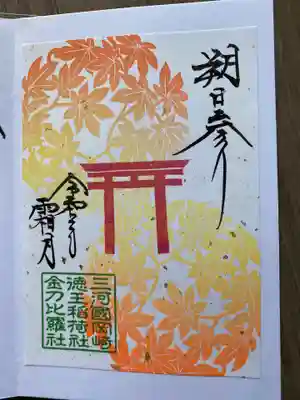 朔日参り
令和
霜月
三河國岡崎
徳王稲荷社
金刀比羅社